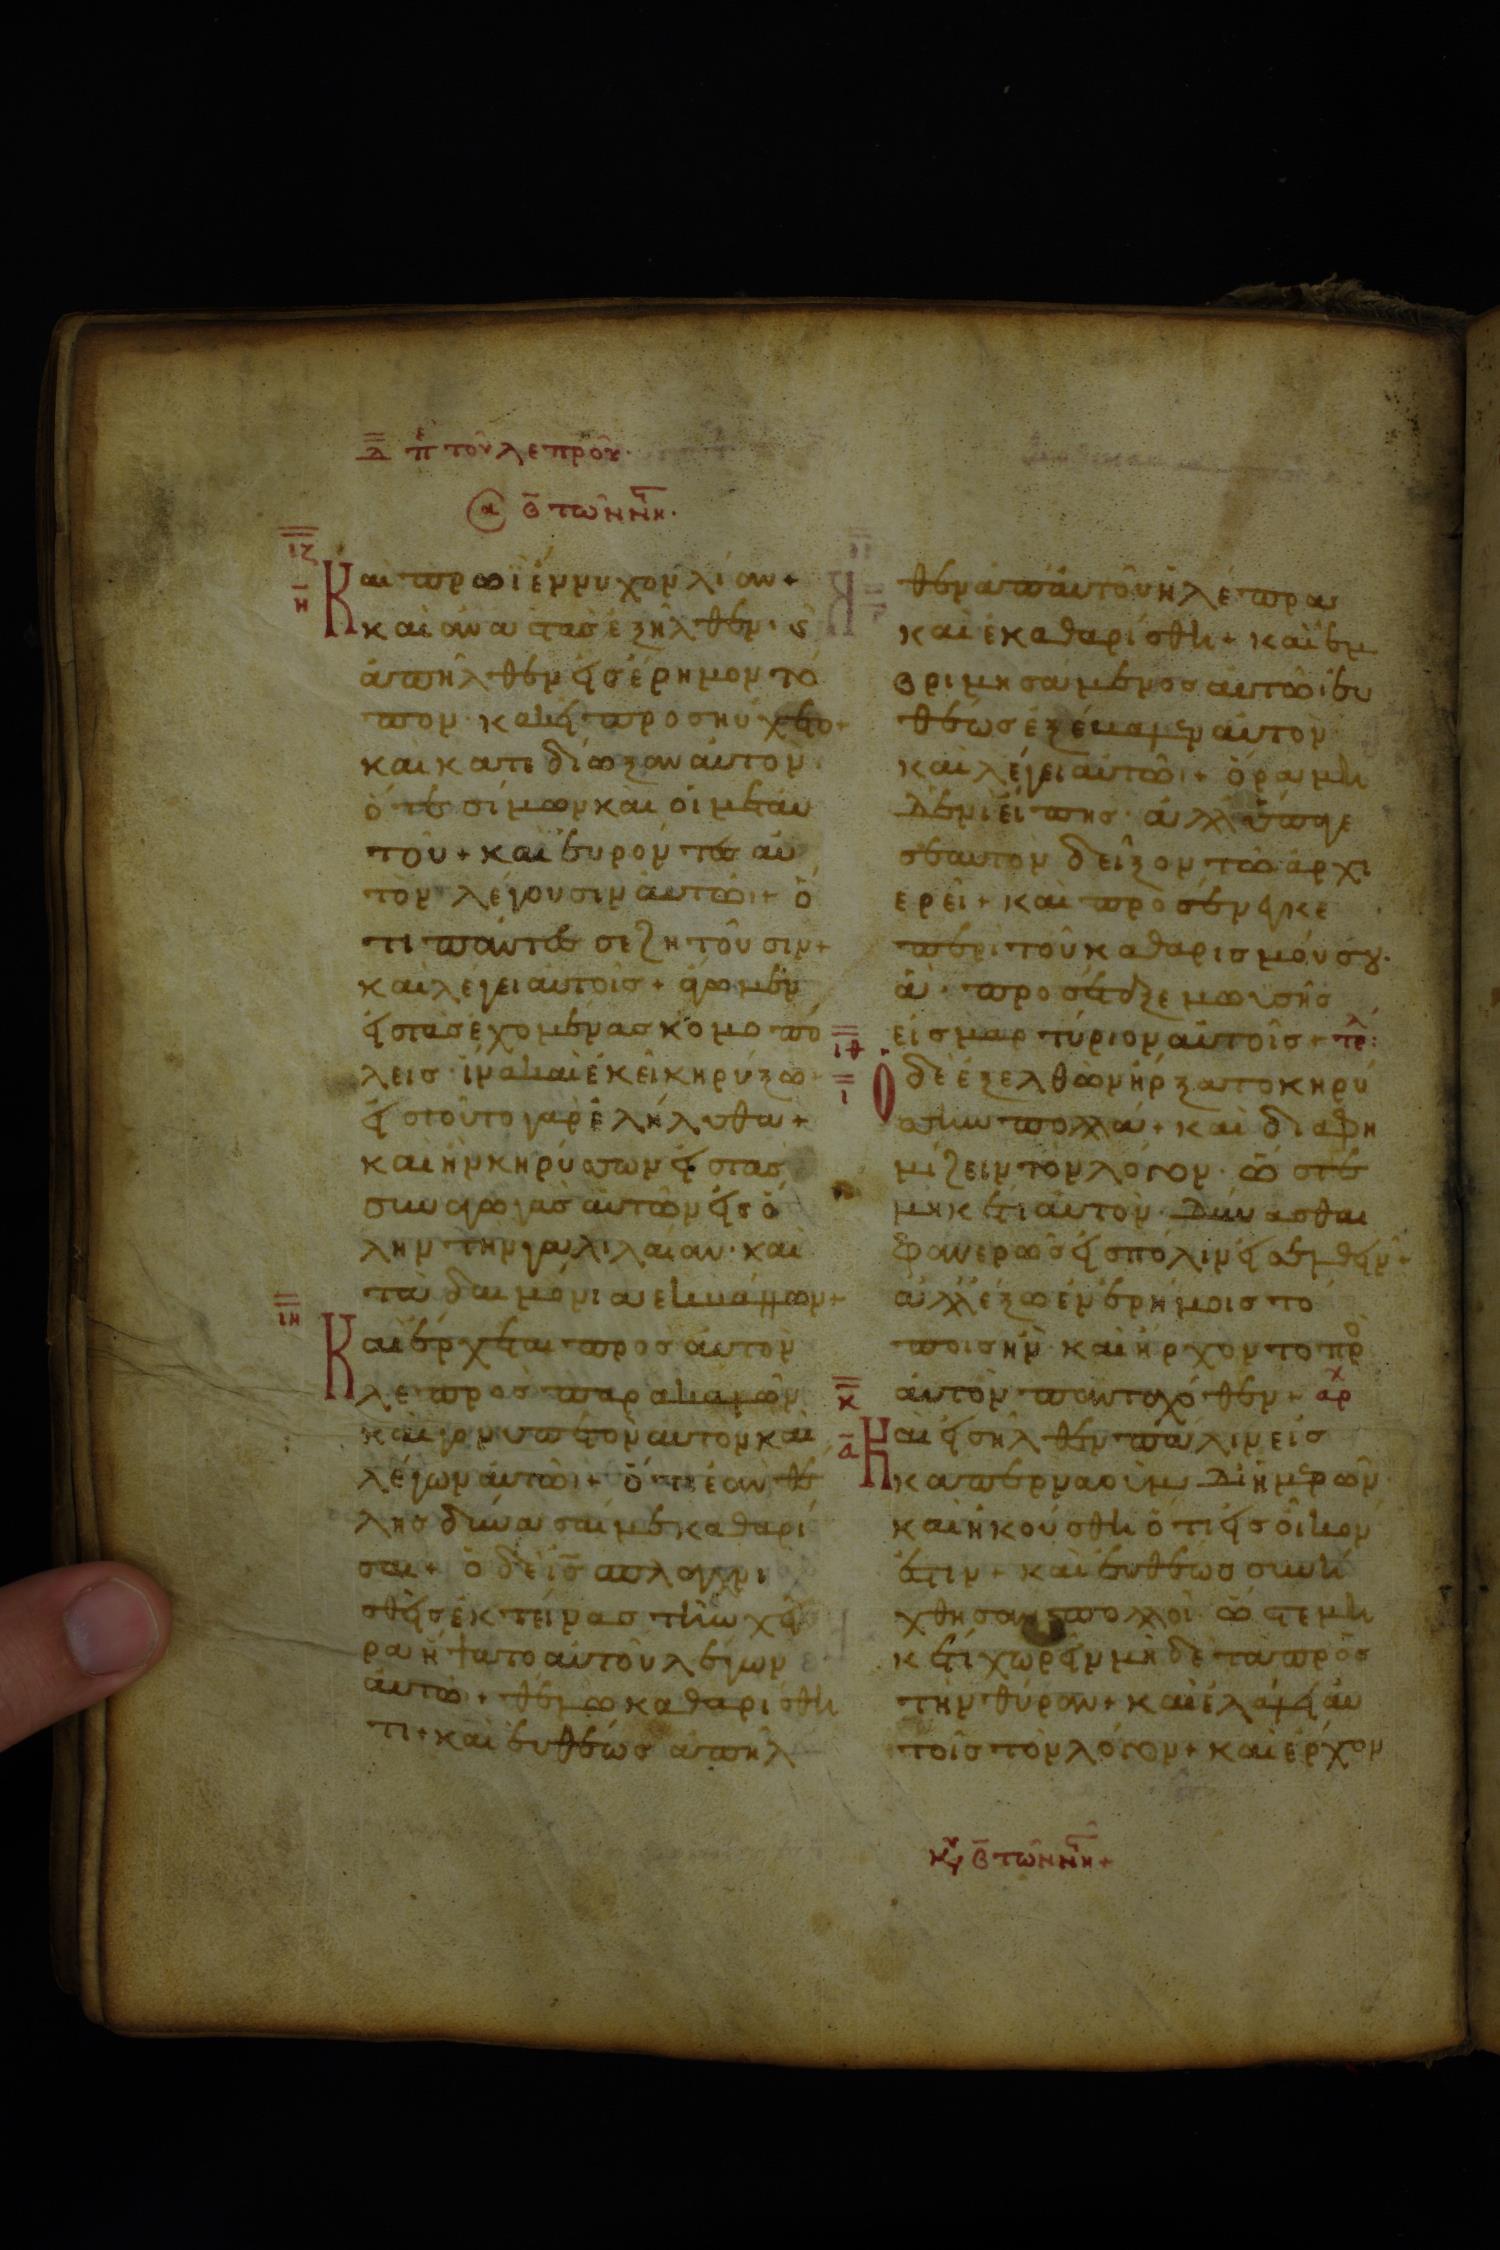 Δ πε τοῦ λεπροῦ.
α β τῶν νηστ.
ιζ
η
Και πρωϊ ἐννυχον λίαν +
και αναστασ ἐξῆλθεν· ϛ
ἀπῆλθεν εἰσ ἔρημον τό
πον· κακεῖ προσηύχετο +
και κατεδίωξαν αὐτον
ὁ τε σίμων και οἱ μετ αυ
τοῦ + και εὑρόντεσ αὐ
τον λέγουσιν ἀυτῶι + ὁ
τι παντεσ σε ζητοῦσιν +
και λέγει αὐτοῖσ + άγωμεν
εἰσ τασ ἐχομένασ κομοπό
λεισ· ἵνα κακεῖ κηρύξω·
εἰσ τοῦτο γαρ ἐλήλυθα +
και ἦν κηρύσσων εἰσ τασ
συναγωγασ αὐτῶν εἰσ ὁ
λην την γαλιλαιαν· και
τα δαιμόνια ἐκβάλλων +
ιη
Και ἔρχεται προσ αὐτον
λεπροσ παρακαλῶν
και γονυπετῶν αυτον και
λέγων ἀυτῶι + ὁτι ἐαν θέ
λησ δύνασαι με καθαρί
σαι + ὁ δὲ ισ σπλαγχνι
σθεισ ἐκτείνασ τὴν χεῖ
ρα ἥψατο αὐτοῦ λέγων
ἀυτῶ + θέλω καθαρίσθη
τι + και ευθέωσ ἀπῆλ
θεν απ αὐτοῦ ἡ λέπρα
και ἐκαθαρίσθη + και ἐμ
βριμησάμενοσ αὐτῶι ευ
θέωσ ἐξέβαλεν αὐτον
και λέγει αὐτῶι + ὁρα μη
δενι εἴπησ· ἀλλ ὕπαγε
σεαυτον δεῖξον τῶ ἀρχι
ερεῖ + και προσένεγκε
περι τοῦ καθαρισμού σου·
ἁ προσέταξε μωυσῆσ
εἰσ μαρτύριον αὐτοῖσ + τελ:
ιθ
ι
Ὁ δὲ ἐξελθων ἤρξατο κηρύ
σσειν πολλα + και διαφη
μίζειν τον λόγον· ὥστε
μηκέτι αὐτον δύνασθαι
φανερῶσ εἰσ πόλιν εἰσελθεῖν +
ἀλλ ἔξω ἐν ἐρήμοισ τό
ποισ ἦν· και ἤρχοντο προ
αὐτον πανταχόθεν + αρχ
κ
α
Και εἰσῆλθεν πάλιν εἰσ
καπερναουμ δι ἡμερῶν
και ἠκούσθη ὁτι εἰσ οἶκον
ἐστιν + και ευθέωσ συνή
χθησαν πολλοι· ὥστε μη
κέτι χωρεῖν μηδε τα προσ
την θύραν + και ἐλάλει αυ
τοῖσ τον λόγον + και ἐρχον
κυ β τῶν νηστ +